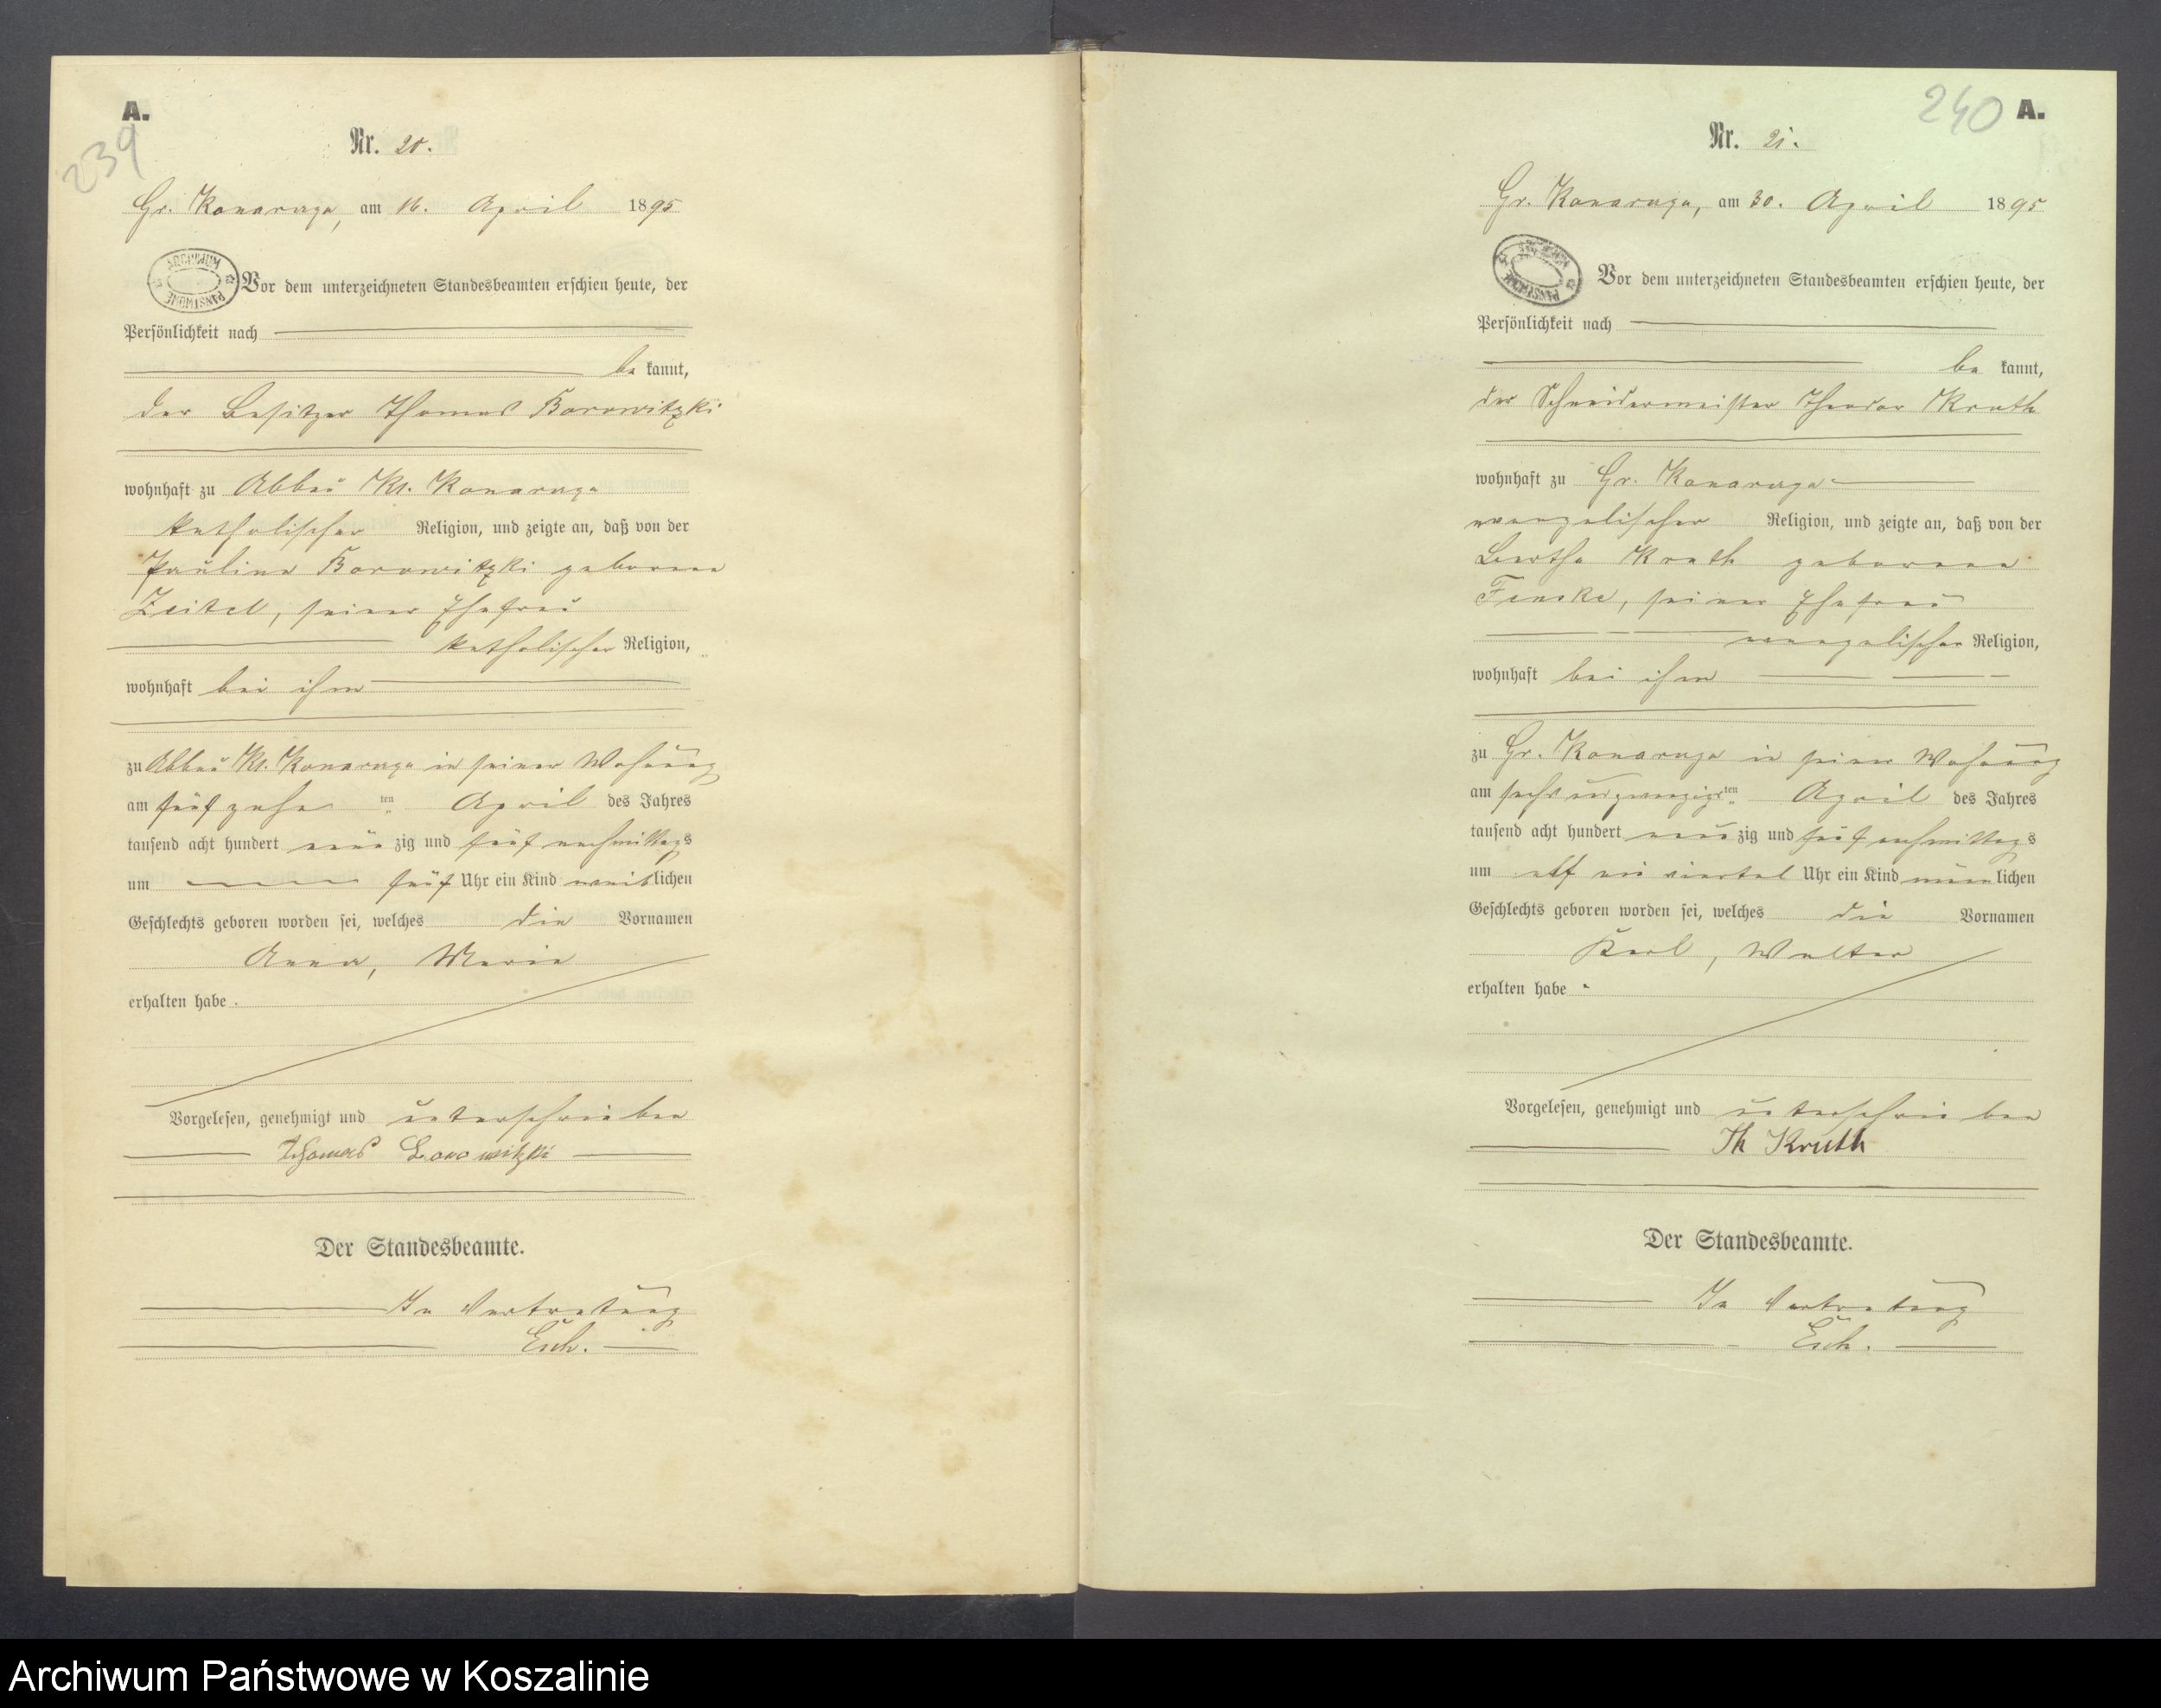 A.
239
Nr. 20.
Gr. Konarczyn, am 16. April 1895
ARCHIWUM PAŃSTWOWE
Vor dem unterzeichneten Standesbeamten erschien heute, der
Persönlichkeit nach
be kannt,
der Besitzer Thomas Borowitzki
wohnhaft zu Abbau Kl. Konarczyn
katholischer Religion, und zeigte an, daß von der
Pauline Borowitzki geborene
Zeitel, seiner Ehefrau
katholischer Religion,
wohnhaft bei ihm
zu Abbau Kl. Konarczyn in seiner Wohnung
am fünfzehn ten April des Jahres
tausend acht hundert neun zig und fünf nachmittags
um fünf Uhr ein Kind weiblichen
Geschlechts geboren worden sei, welches die Vornamen
Anna, Marie
erhalten habe.
Vorgelesen, genehmigt und unterschrieben
Thomas Borowitzki
Der Standesbeamte.
In Vertretung
Esch.
240 A.
Nr. 21.
Gr. Konarczyn, am 30. April 1895
ARCHIWUM PAŃSTWOWE
Vor dem unterzeichneten Standesbeamten erschien heute, der
Persönlichkeit nach
be kannt,
der Schneidermeister Theodor Kruth
wohnhaft zu Gr. Konarczyn
evangelischer Religion, und zeigte an, daß von der
Bertha Kruth geborene
Fenske, seiner Ehefrau
evangelischer Religion,
wohnhaft bei ihm
zu Gr. Konarczyn in seiner Wohnung
am sechsundzwanzigsten April des Jahres
tausend acht hundert neunzig und fünf nachmittags
um elf ein viertel Uhr ein Kind männlichen
Geschlechts geboren worden sei, welches die Vornamen
Karl, Walter
erhalten habe.
Vorgelesen, genehmigt und unterschrieben
Th Kruth
Der Standesbeamte.
In Vertretung
Esch.
Archiwum Państwowe w Koszalinie